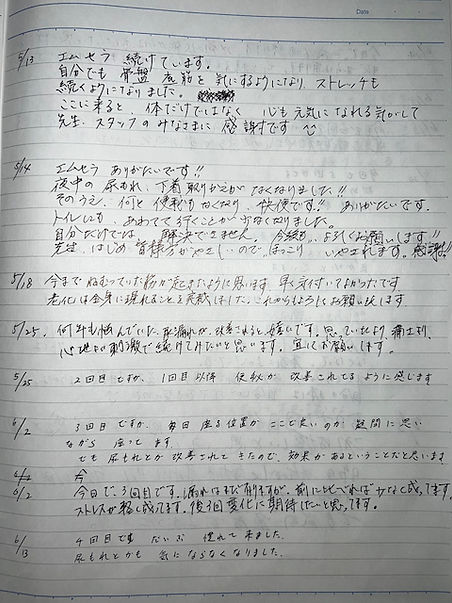 Date
5/13 エムセラ 続けています。
自分でも 骨盤 底筋を 気にするようになり、ストレッチも
続くようになりました。
ここに来ると 体だけではなく 心も元気になれる気がして
先生、スタッフのみなさまに 感謝です
5/14 エムセラ ありがたいです!!
夜中の尿もれ、下着取りかえが なくなりました!!
そのうえ、何と 便秘もなくなり、快便です!! ありがたいです。
トイレにも、あわてて行くことが少なくなりました。
自分だけでは、解決できません。今後も、よろしくお願いします!!
先生、はじめ 皆様方がやさしいので、ほっこり いやされます。感謝!!
5/18 今まで ねむっていた筋が起きたように思います 早く気付いてよかったです
老化は全身に現れることを実感しました。これからもよろしくお願い致します
5/25. 何年も悩んでいた、尿漏れが、改善されると嬉しいです。思っていたより、痛さより、
心地よい刺激で続けてみたいと思います。宜しくお願いします。
5/25 2回目ですが、1回目以降 便秘が 改善されてるように感じます
6/2 3回目ですが、毎回座る位置が ここで良いのか 疑問に思い
ながら 座ってます
でも 尿もれとか 改善されて きたので、効果があるということだと思います
6/2 今
6/2 今日で、3回目です。漏れはまだ有りますが、前に比べれば少なく成ってます。
ストレスが軽く成ってます。後3回変化に期待したいと思ってます。
6/13 4回目です だいぶ 慣れて来ました。
尿もれとかも 気にならなくなりました。